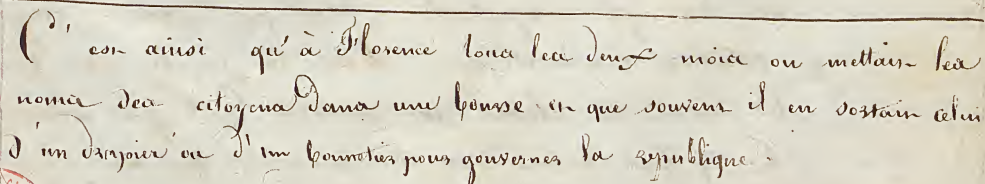 C'est ainsi qu'à Florence tous les deux mois on mettait les
noms des citoyens dans une bourse et que souvent il en sortait celui
d'un drapier ou d'un bonnetier pour gouverner la republique.